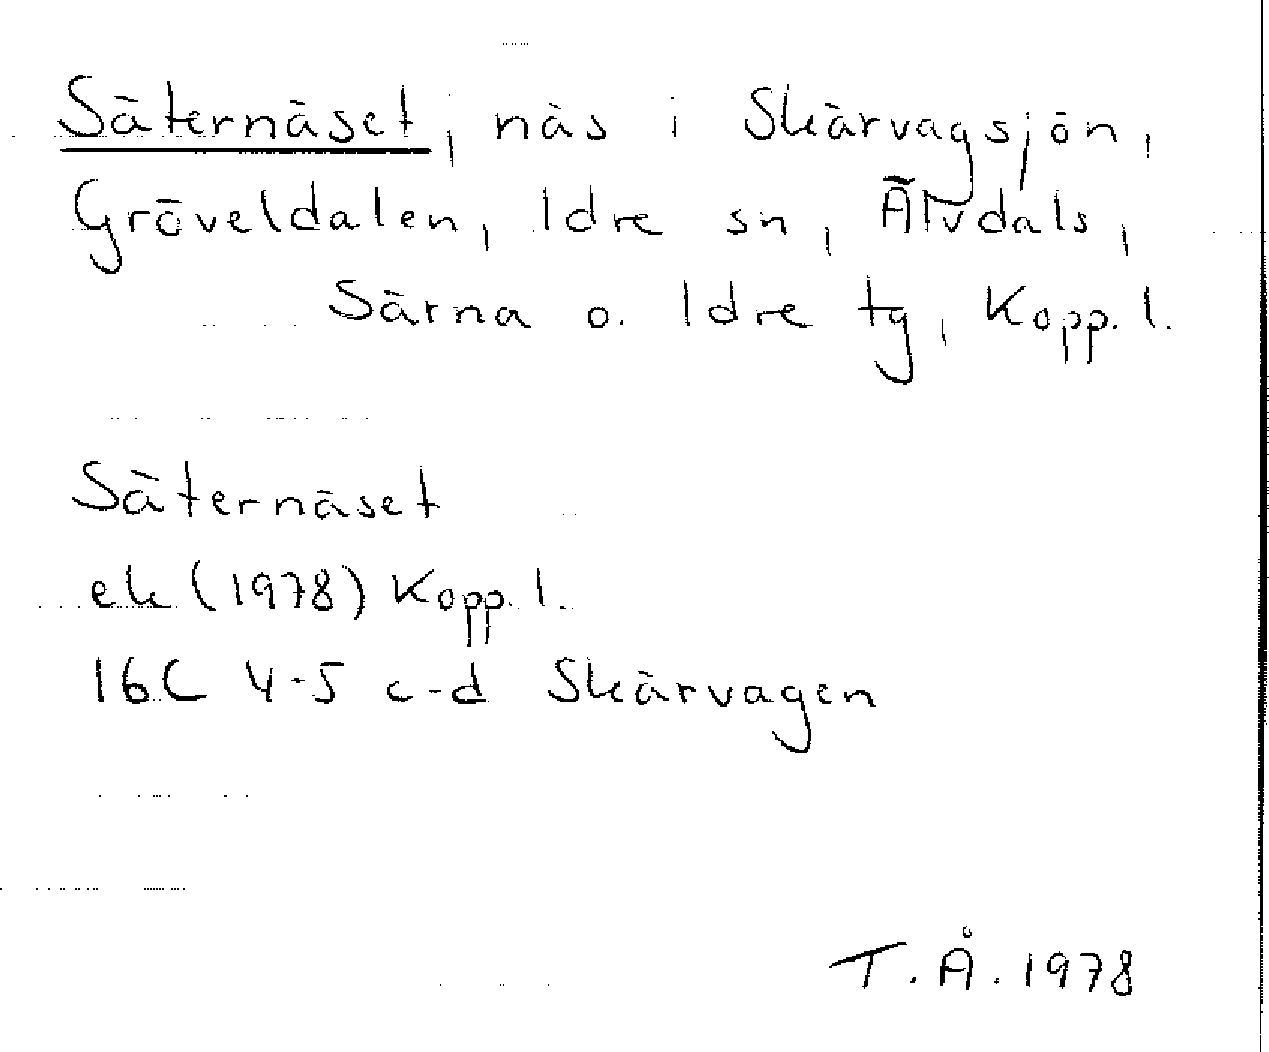 Säternäset, näs i Skärvagsjön,
Gröveldalen, Idre sn, Älvdals,
Särna o. Idre tg, Kopp. l.
Säternäset
ek (1978) Kopp. l.
16C 4-5 c-d Skärvagen
T.Å. 1978